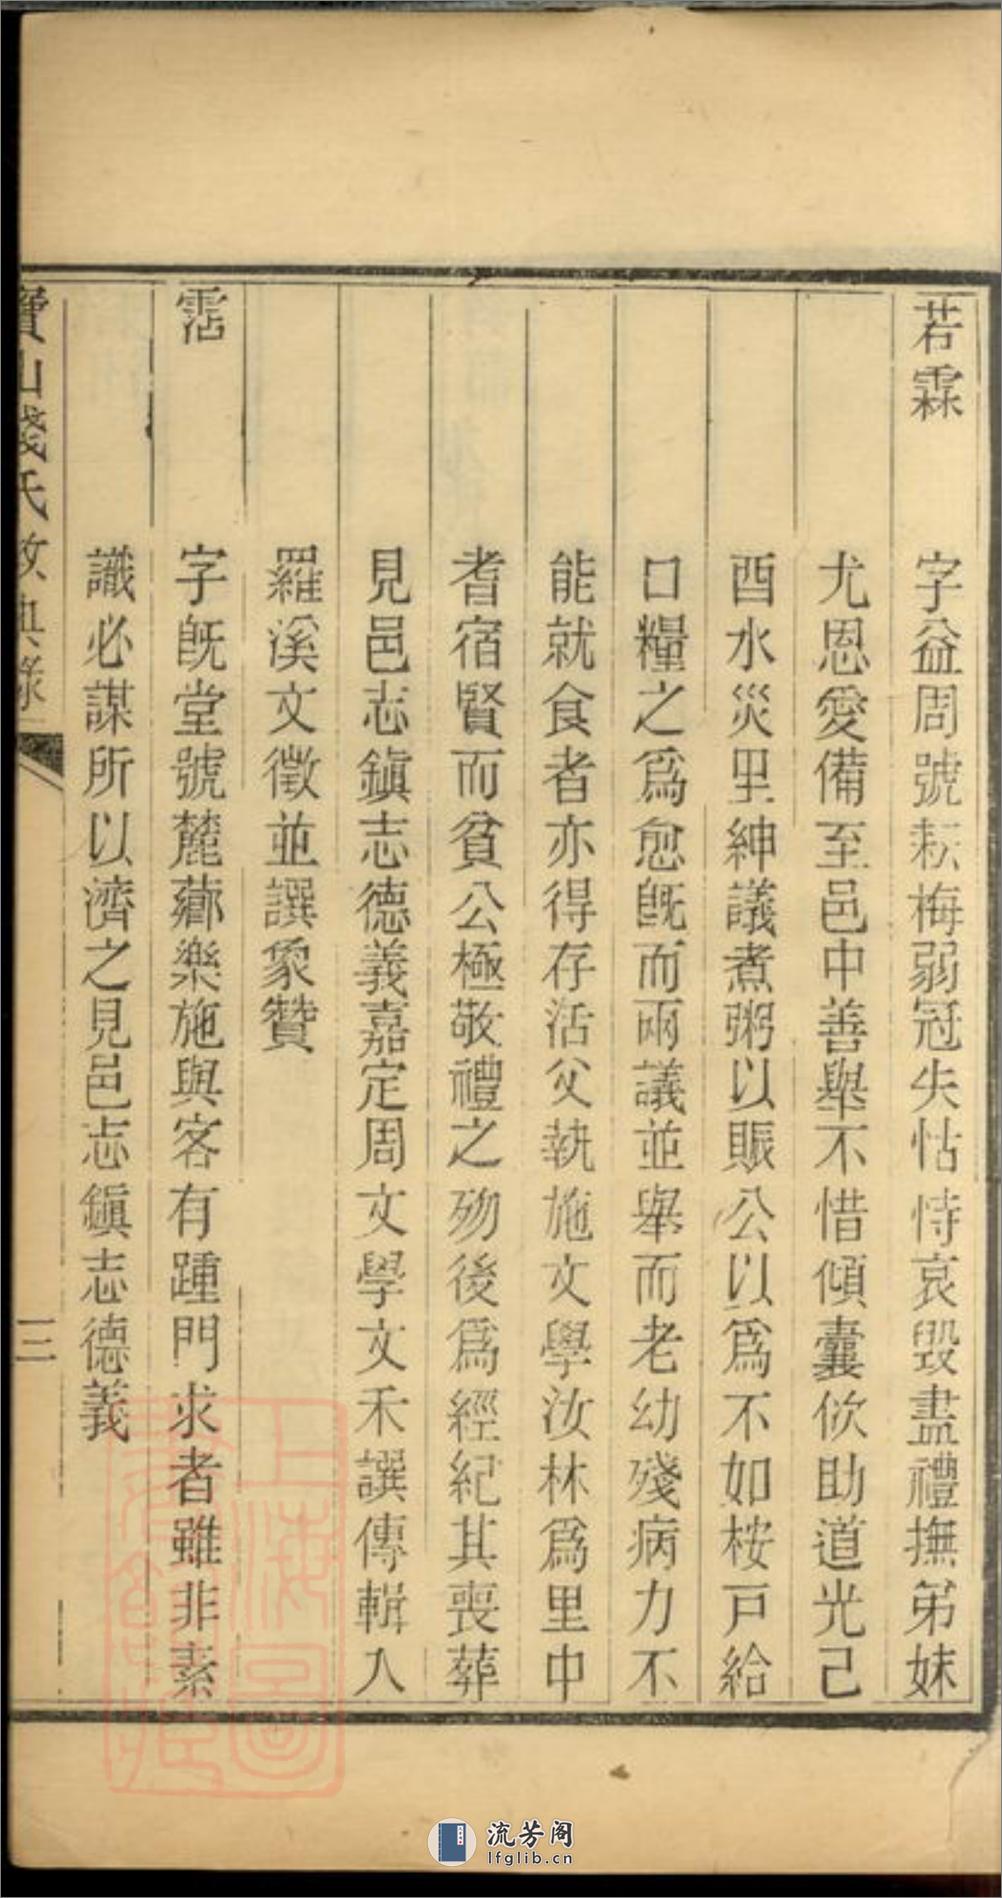 若霖
字益周號耘梅弱冠失怙恃哀毀盡禮撫弟妹
尤恩愛備至邑中善舉不惜傾囊佽助道光己
酉水災里紳議煮粥以賑公以爲不如桉戶給
口糧之爲愈旣而兩議並舉而老幼殘病力不
能就食者亦得存活父執施文學汝林爲里中
耆宿賢而貧公極敬禮之歿後爲經紀其喪葬
見邑志鎭志德義嘉定周文學文禾譔傳輯入
羅溪文徵並譔象贊
霑
字旣堂號麓薌樂施與客有踵門求者雖非素
識必謀所以濟之見邑志鎭志德義
寶山錢氏文典錄
三
上海圖書館藏
流芳阁
lfglib.cn